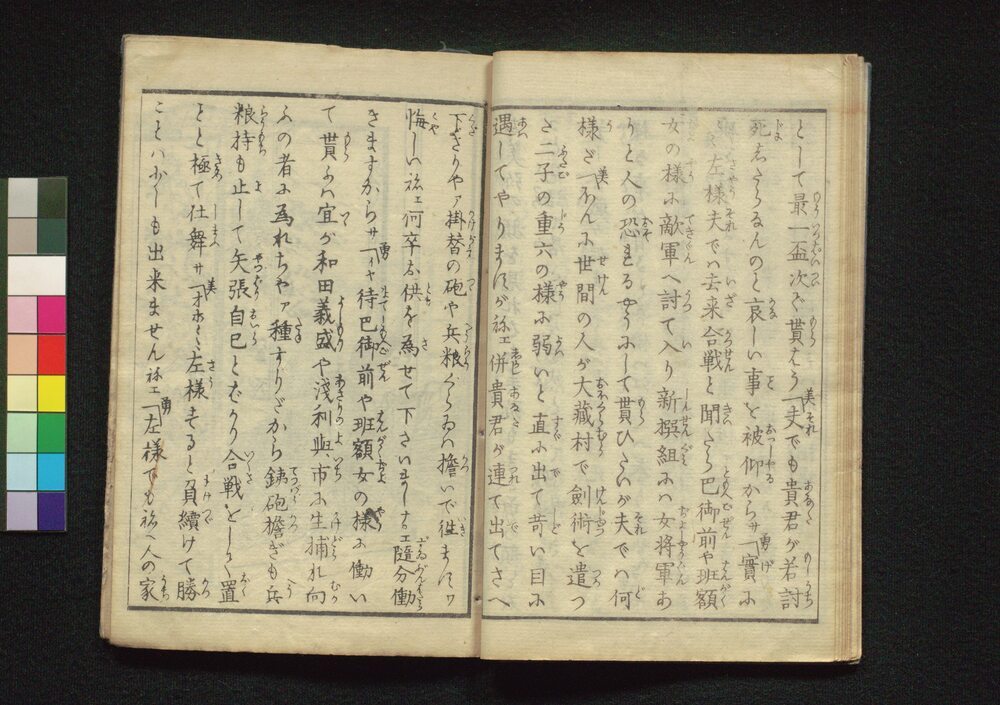 として最一盃次で貰はう「夫でも貴君が若討
死志たらなんのと哀しい事を被仰からサ「實ふ
左様夫でハ去来合戦と聞たら巴御前や班額
女の様ふ敵軍へ討て入り新撰組ふハ女将軍あ
りと人の恐れるやうふして貰ひたいが夫でハ何
様ざ「なんふ世間の人が大蔵村で劍術を遣つ
さ二子の重六の様ふ弱いと直ふ出て苛い目ふ
遇してやりますが祢エ併貴君が連て出てさへ
下さりやァ掛替の砲や兵粮ぐらゐハ擔いで往ますワ
悔しい祢エ何卒お供を為せて下さいましナエ隨分働
きますからサ「イヤ待巴御前や班額女の様ふ働い
て貰ふハ宜が和田義盛や淺利與市ふ生捕れ向
ふの者ふ為れちやァ種すりざから銕砲擔ぎも兵
粮持も止して矢張自己とばかり合戦をしよく置
とと極て仕舞サ「オホヽヽ左様すると負續けて勝
ことハ少しも出来ません祢エ「左様でも祢へ人の家